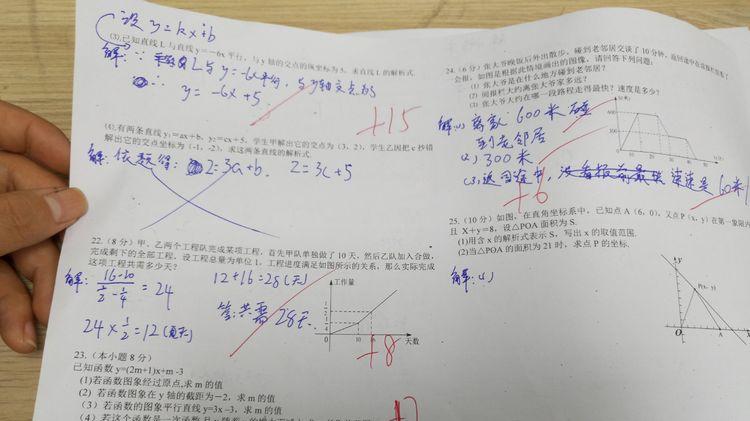 设 y=kx+b
(3).已知直线 L 与直线 y=－6x 平行，与 y 轴的交点的纵坐标为 5，求直线 L 的解析式.
解: ∵ L与 y=-6x平行, 与y轴交点为5
∴ y=-6x+5
+15
(4).有两条直线 y₁=ax+b, y₂=cx+5. 学生甲解出它的交点为（3，2），学生乙因把 c 抄错
解出它的交点坐标为（-1，-2），求这两条直线的解析式.
解: 依题得: 2=3a+b. 2=3c+5
22.（8 分）甲、乙两个工程队完成某项工程，首先甲队单独做了 10 天，然后乙队加入合做，
完成剩下的全部工程，设工程总量为单位 1，工程进度满足如图所示的关系，那么实际完成
这项工程共需多少天?
解: 16-10 / 1/2 - 1/4 = 24
12+16=28(天)
24×1/2=12(天)
答:共需 28天.
工作量
10 16
天数
+8
23.（本小题 8 分）
已知函数 y=(2m+1)x+m -3
(1)若函数图象经过原点,求 m 的值
(2) 若函数图象在 y 轴的截距为－2，求 m 的值
(3) 若函数的图象平行直线 y=3x –3，求 m 的值
24.（6 分）张大爷晚饭后外出散步，碰到老邻居交谈了 10 分钟，返回途中在读报栏前看了
会报，如图是根据此情境画出的图像，请回答下列问题:
(1) 张大爷是在什么地方碰到老邻居?
(2) 阅报栏大约离张大爷家多远?
(3) 张大爷大约在哪一段路程走得最快? 速度是多少?
解:(1) 离家: 600米 碰
到老邻居
(2) 300米
(3) 返回途中, 速度是 60米/
+6
25.（10 分）如图，在直角坐标系中，已知点 A（6，0），又点 P（x，y）在第一象限内
且 X＋y=8，设△POA 面积为 S.
(1)用含 x 的解析式表示 S，写出 x 的取值范围.
(2)当△POA 的面积为 21 时，求点 P 的坐标.
解: (1)
y
P(x, y)
O A x